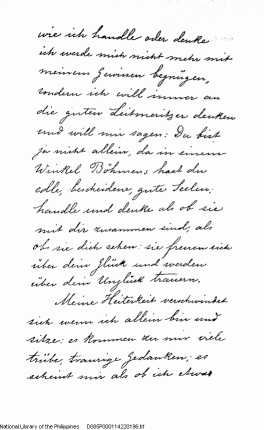 wie ich handle oder denke
ich werde mich nicht mehr mit
meinem Gewissen begnügen,
sondern ich will immer an
die guten Leitmeritzer denken
und will mir sagen: Du bist
ja nicht allein, da in einem
Winkel Böhmens hast du
edle, bescheidene, gute Seelen;
handle und denke als ob sie
mit dir zusammen sind, als
ob sie dich sehen: sie freuen sich
über dein Glück und werden
über dein Unglück trauern.
Meine Heiterkeit verschwindet
sich wenn ich allein bin und
sitze; es kommen zu mir viele
trübe, traurige Gedanken; es
scheint mir als ob ich etwas
National Library of the Philippines D085P000114220196.tif